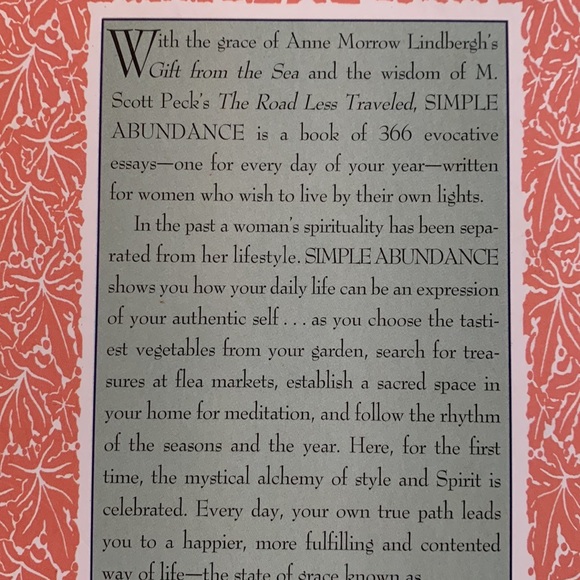 With the grace of Anne Morrow Lindbergh's
Gift from the Sea and the wisdom of M.
Scott Peck's The Road Less Traveled, SIMPLE
ABUNDANCE is a book of 366 evocative
essays—one for every day of your year—written
for women who wish to live by their own lights.
In the past a woman's spirituality has been sepa-
rated from her lifestyle. SIMPLE ABUNDANCE
shows you how your daily life can be an expression
of your authentic self . . . as you choose the tasti-
est vegetables from your garden, search for trea-
sures at flea markets, establish a sacred space in
your home for meditation, and follow the rhythm
of the seasons and the year. Here, for the first
time, the mystical alchemy of style and Spirit is
celebrated. Every day, your own true path leads
you to a happier, more fulfilling and contented
way of life—the state of grace known as